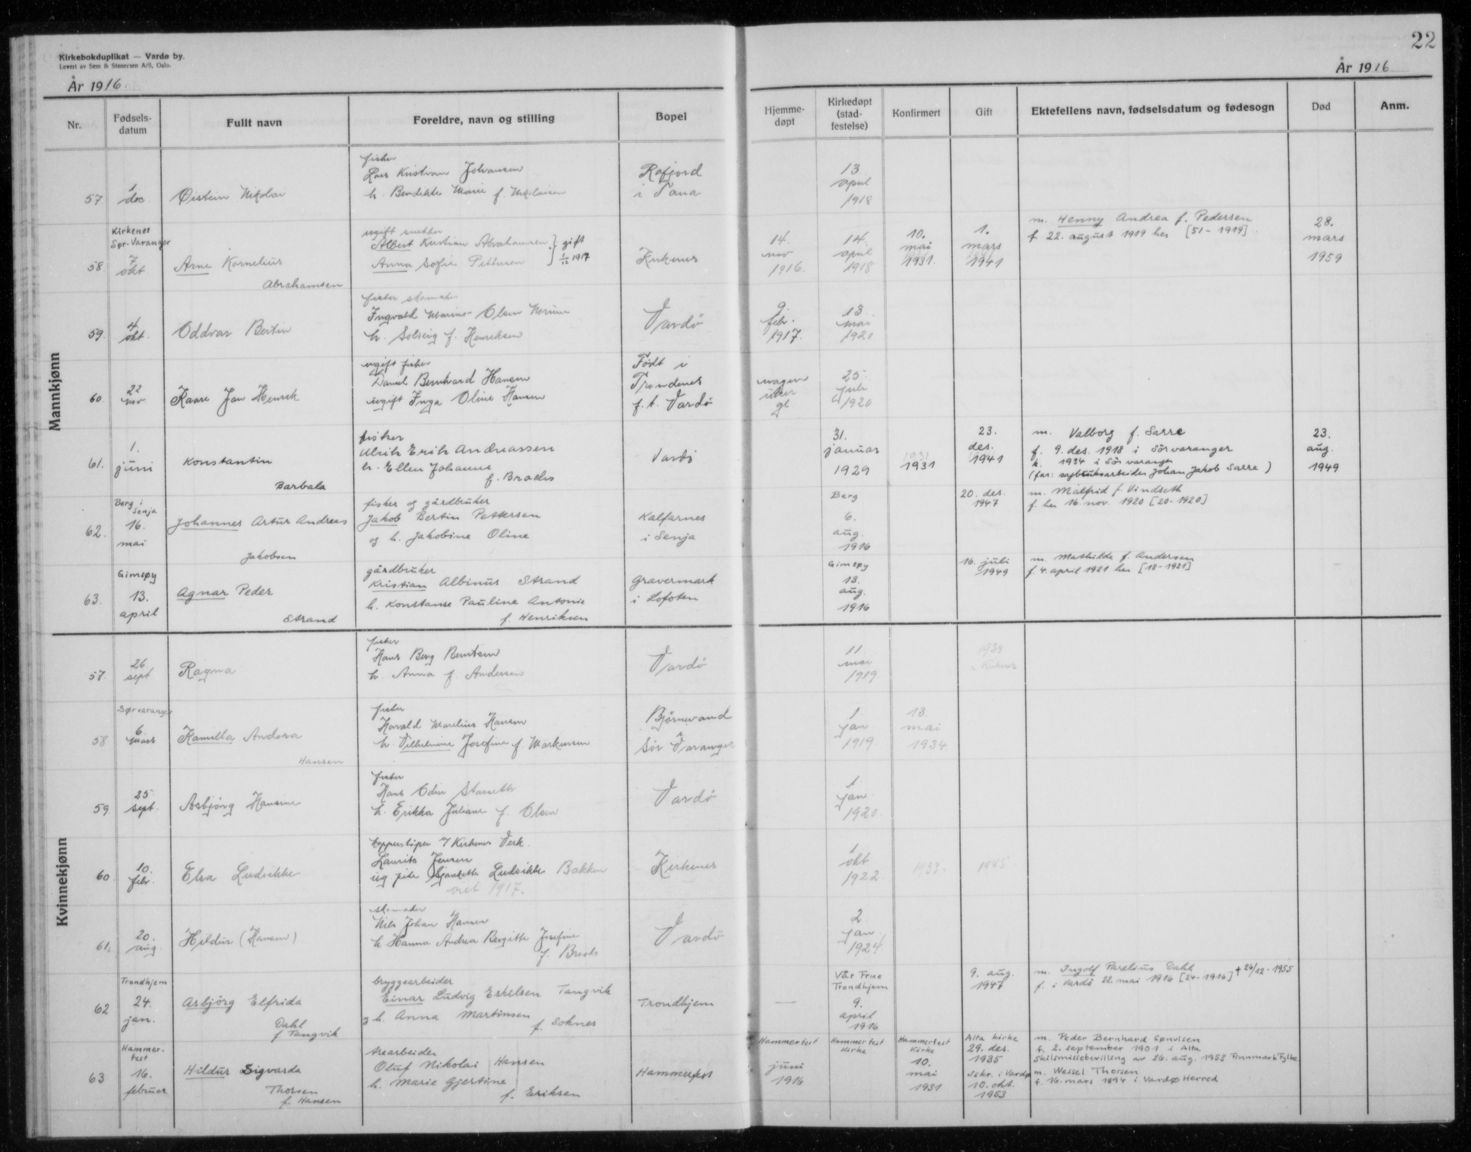 22
Kirkebokduplikat — Vardø by.
Levert av Sem & Stenersen A/S, Oslo.
År 1916
År 1916
Nr.
Fødsels-
datum
Fullt navn
Foreldre, navn og stilling
Bopel
Hjemme-
døpt
Kirkedøpt
(stad-
festelse)
Konfirmert
Gift
Ektefellens navn, fødselsdatum og fødesogn
Død
Anm.
Mannkjønn
57
1
des.
Øistein Nikolai
fisker
Lars Kristian Johansen
h. Bendikte Marie f. Nikolaisen
i Tana
13
april
1918
58
Kirkenes
Sør-Varanger
7
okt
Arne Kornelius
Abrahamsen
ugift
Albert Kristian Abrahamsen
Anna Sofie Pettersen
gift
1917
Kirkenes
14.
nov
1916.
14.
april
1918
10.
mai
1931.
1.
mars
1941
m. Henny Andrea f. Pedersen
f. 22. august 1919 her [51-1919]
28.
mars
1959
59
4
okt.
Oddvar Bertin
fisker
Ingvald Marino Olsen
h. Solveig f. Henriksen
Vardø
9
febr.
1917.
13
mai
1920
60
22
nov
Kaare Jan Henrik
ugift fisker
Daniel Bernhard Hansen
ugift Inga Oline Hansen
Født i
Trondenes
f. t. Vardø
25
1920
61.
1.
juni
Konstantin
Barbala
fisker
Ulrik Erik Andreassen
h. Ellen Johanne
f. Brodis
Vardø
31.
januar
1929
1931
1931
23.
des.
1941
m. Valborg f. Sarre
f. 9. des. 1918 i Sørvaranger
k. 1934 i Sør varanger
Johan Jakob Sarre )
23.
aug.
1949
62.
Berg i
Senja
16.
mai
Johannes Artur Andreas
Jakobsen
fisker og gårdbruker
Jakob Bertin Pettersen
og h. Jakobine Oline
Kalfarnes
i Senja
Berg
6.
aug.
1916
20. des.
1947
m. Målfrid f. Vindseth
f. her 16. nov. 1920 [20-1920]
63.
Gimsøy
13.
april
Agnar Peder
Strand
gårdbruker
Kristian Albinus Strand
h. Konstanse Pauline Antonie
f. Henriksen
Gravermark
i Lofoten
Gimsøy
13.
aug.
1916
16. juli
1949
m. Mathilde f. Andersen
f. 4. april 1921 her [18-1921]
Kvinnekjønn
57.
26
sept
Ragna
fisker
Hans Berg Berntsen
h. Anna f. Andersen
Vardø
11
mai
1919
58
Sørvaranger
6
mars
Kamilla Andora
Hansen
fisker
Harald Marelius Hansen
h. Vilhelmine Josefine f. Markussen
Bjørnevand
Sør Varanger
1
jan
1919
13.
mai
1934
59
25
sept.
Asbjørg Hansine
fisker
Hans Oden
h. Erikka Juliane f. Olsen
Vardø
1
jan
1920
60
10.
febr.
Elsa Ludvikke
Laurits Jensen
Ludvikke Bakken
1917.
Kirkenes
1
okt
1922
1933
1945
61.
20.
aug
Hildur (Hansen)
Nils Johan Hansen
h. Hanna Andrea Bergitte Josefine
Vardø
2
jan
1924
62
Trondhjem
24.
jan.
Asbjörg Elfrida
Dahl
f. Tangvik
bryggearbeider
Einar Ludvig Eskelsen Tangvik
h. Anna Martinsen
f. Soknes
Trondhjem
—
Vår Frue
Trondhjem
9.
april
1916
9. aug.
1947
m. Ingolf Parelius Dahl
† 24/12-1955
f. i Vardø 22. mai 1916 [24-1916]
63
Hammer-
fest
16.
februar
Hildur Sigvarda
Thorsen
f. Hansen
Oluf Nikolai Hansen
h. Marie Gjertine
f. Eriksen
Hammerfest
Hammerfest
juni
1916
Hammerfest
Kirke
Hammerfest
Kirke
10.
mai
1931
Alta kirke
29. des.
1935
i Vardø
10. okt.
1953
m. Peder Bernhard Jenvisen
f. 2. september 1901 i Alta
Skilsmissebevilling av 26. aug. 1952 Finnmark Fylke
m. Wessel Thorsen
f. 16. mars 1894 i Vardø Herred